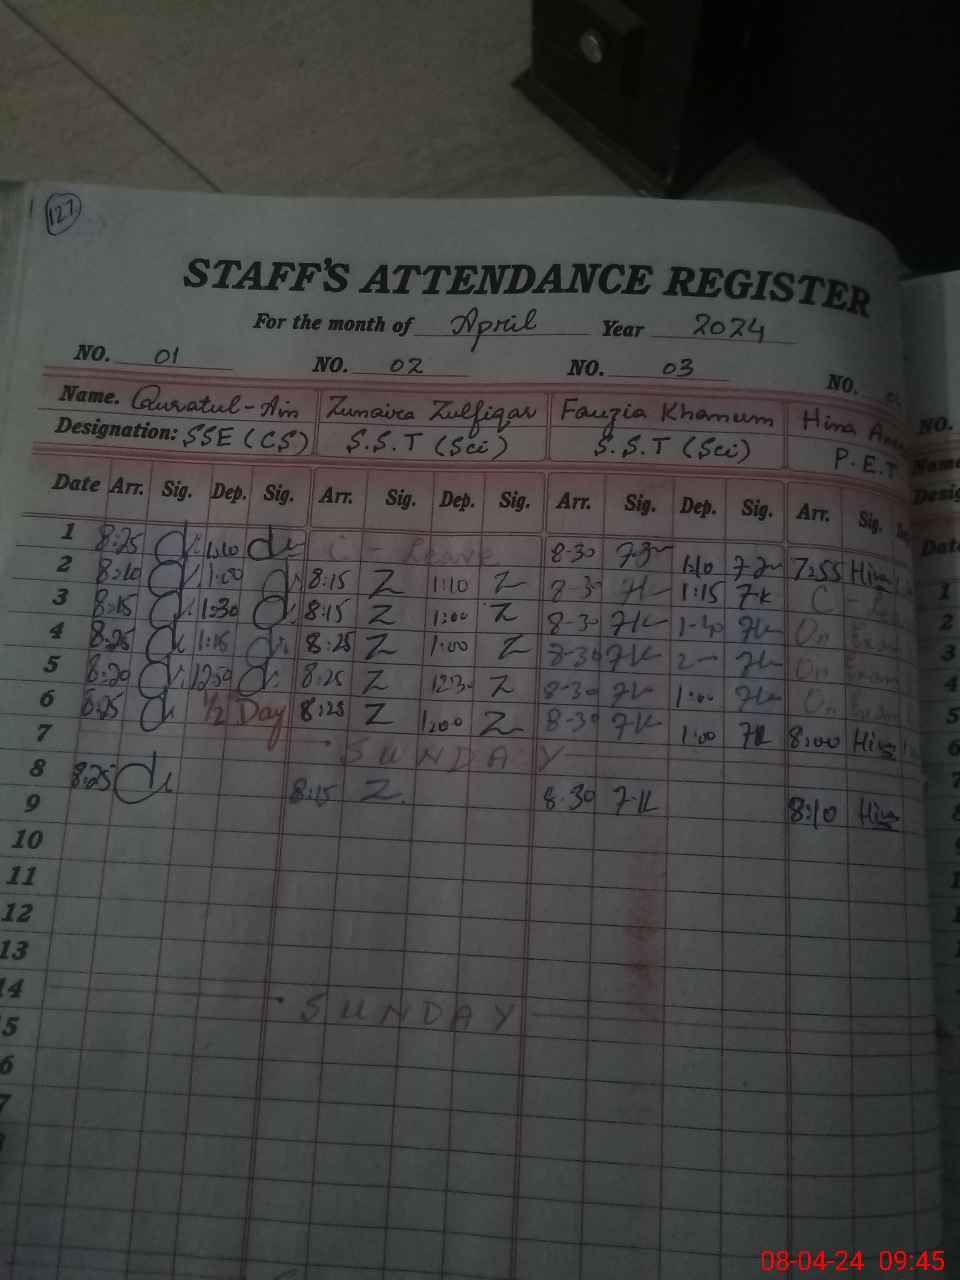 127
STAFF'S ATTENDANCE REGISTER
For the month of April Year 2024
NO. 01 NO. 02 NO. 03 NO.
Name. Quratul-Ain Zunaira Zulfiqar Fauzia Khanum Hina
Designation: SSE (CS) S.S.T (Sci) S.S.T (Sci) P.E.T
Date Arr. Sig. Dep. Sig. Arr. Sig. Dep. Sig. Arr. Sig. Dep. Sig. Arr. Sig.
1 8:25 1:10 C - Leave 8-30 1:10 7:55 Hina
2 8:10 1:00 8:15 Z 1:10 Z 8-3 1:15 7-K C -
3 8:15 1:30 8:15 Z 1:00 Z 8-30 7K 7K On
4 8:25 1:15 8:25 Z 1:00 Z 8-30 7K On Exam
5 8:20 12:50 8:25 Z 12:30 Z 8-30 1:00 On Exam
6 8:25 1/2 Day 8:25 Z 1:00 Z 8-30 7K 1:00 7K 8:00 Hina
7 SUNDAY
8 8:25 8:15 Z 8.30 7-K 8:10 Hina
9
10
11
12
13
14 SUNDAY
5
6
7
NO.
Name
Desig
Date
1
2
3
4
5
6
7
8
08-04-24 09:45